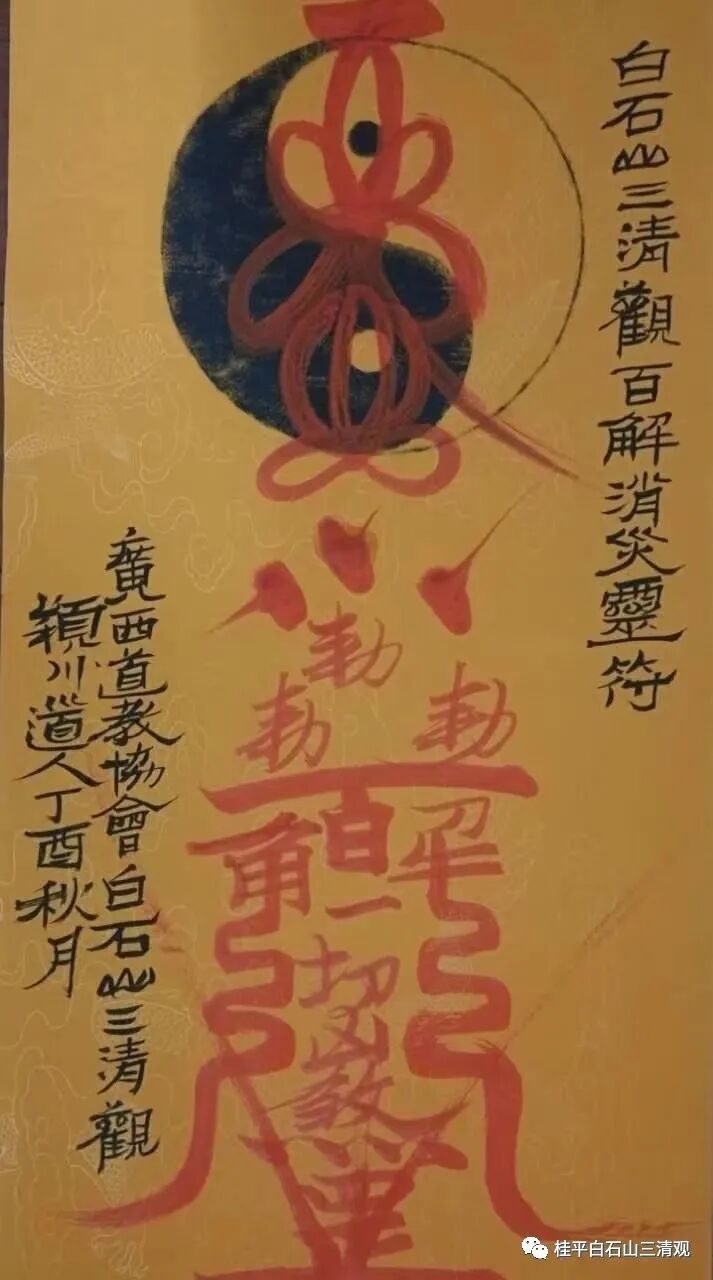 白石山三清觀百解消災靈符
勅
勅 勅
百
解
一
切
凶
煞
廣西道教協會白石山三清觀
穎川道人丁酉秋月
桂平白石山三清观